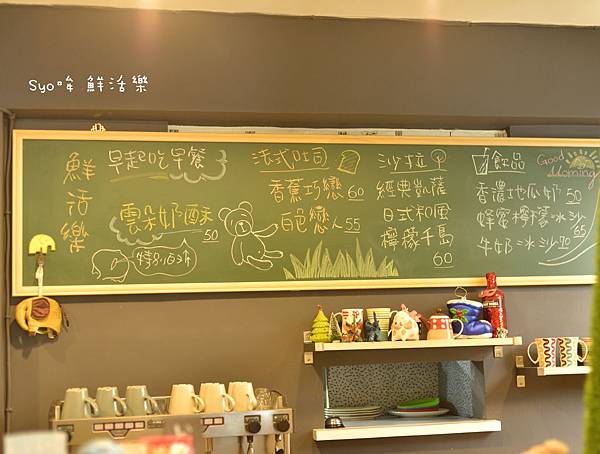 Syo哞 鮮活樂
鮮活樂
早起吃早餐
雲朵奶酥
50
法式吐司
香蕉巧戀 60
白色戀人 55
沙拉
經典凱薩
日式和風
檸檬千島
60
飲品
Good Morning
香濃地瓜奶 50
蜂蜜檸檬冰沙
65
牛奶冰沙 70